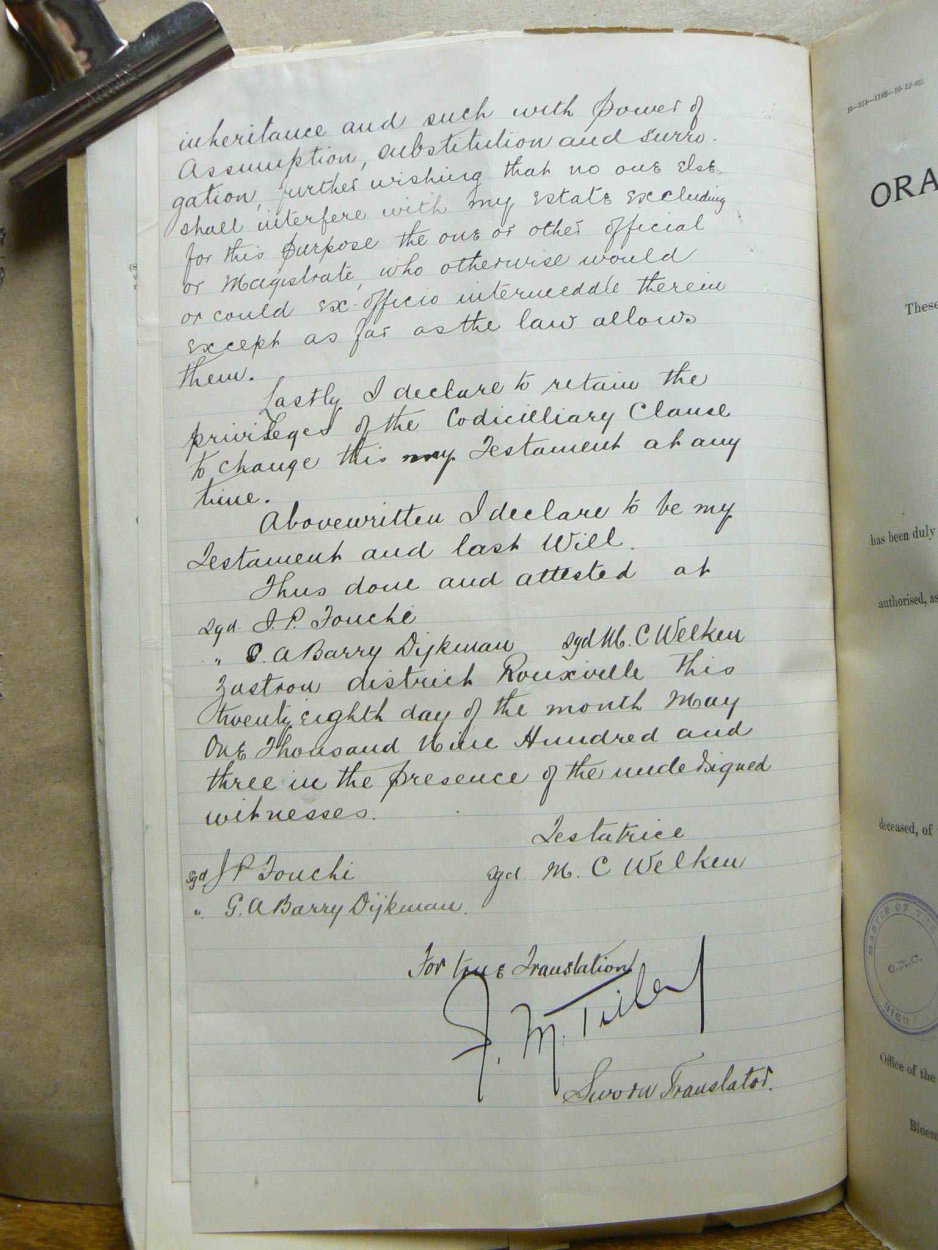 inheritance and such with power of
Assumption, substitution and surro-
gation, further wishing that no one else
shall interfere with my Estate excluding
for this purpose the one or other official
or Magistrate, who otherwise would
or could ex-officio intermeddle therein
except as far as the law allows
them.
Lastly I declare to retain the
privileges of the Codicilliary Clause
to change this my Testament at any
time.
Abovewritten I declare to be my
Testament and last Will.
Thus done and attested at
sgd J. P. Fouché
" G. A Barry Dijkman sgd M. C Welken
Zastron district Rouxville this
twenty eighth day of the month May
One Thousand Nine Hundred and
three in the presence of the undersigned
witnesses.
Testatrice
sgd J P Fouché sgd M. C Welken
" G. A Barry Dijkman.
For true Translation
J. M.
Sworn Translator.
ORA
These
has been duly
authorised, as
deceased, of
MASTER OF THE
Office of the
Bloem